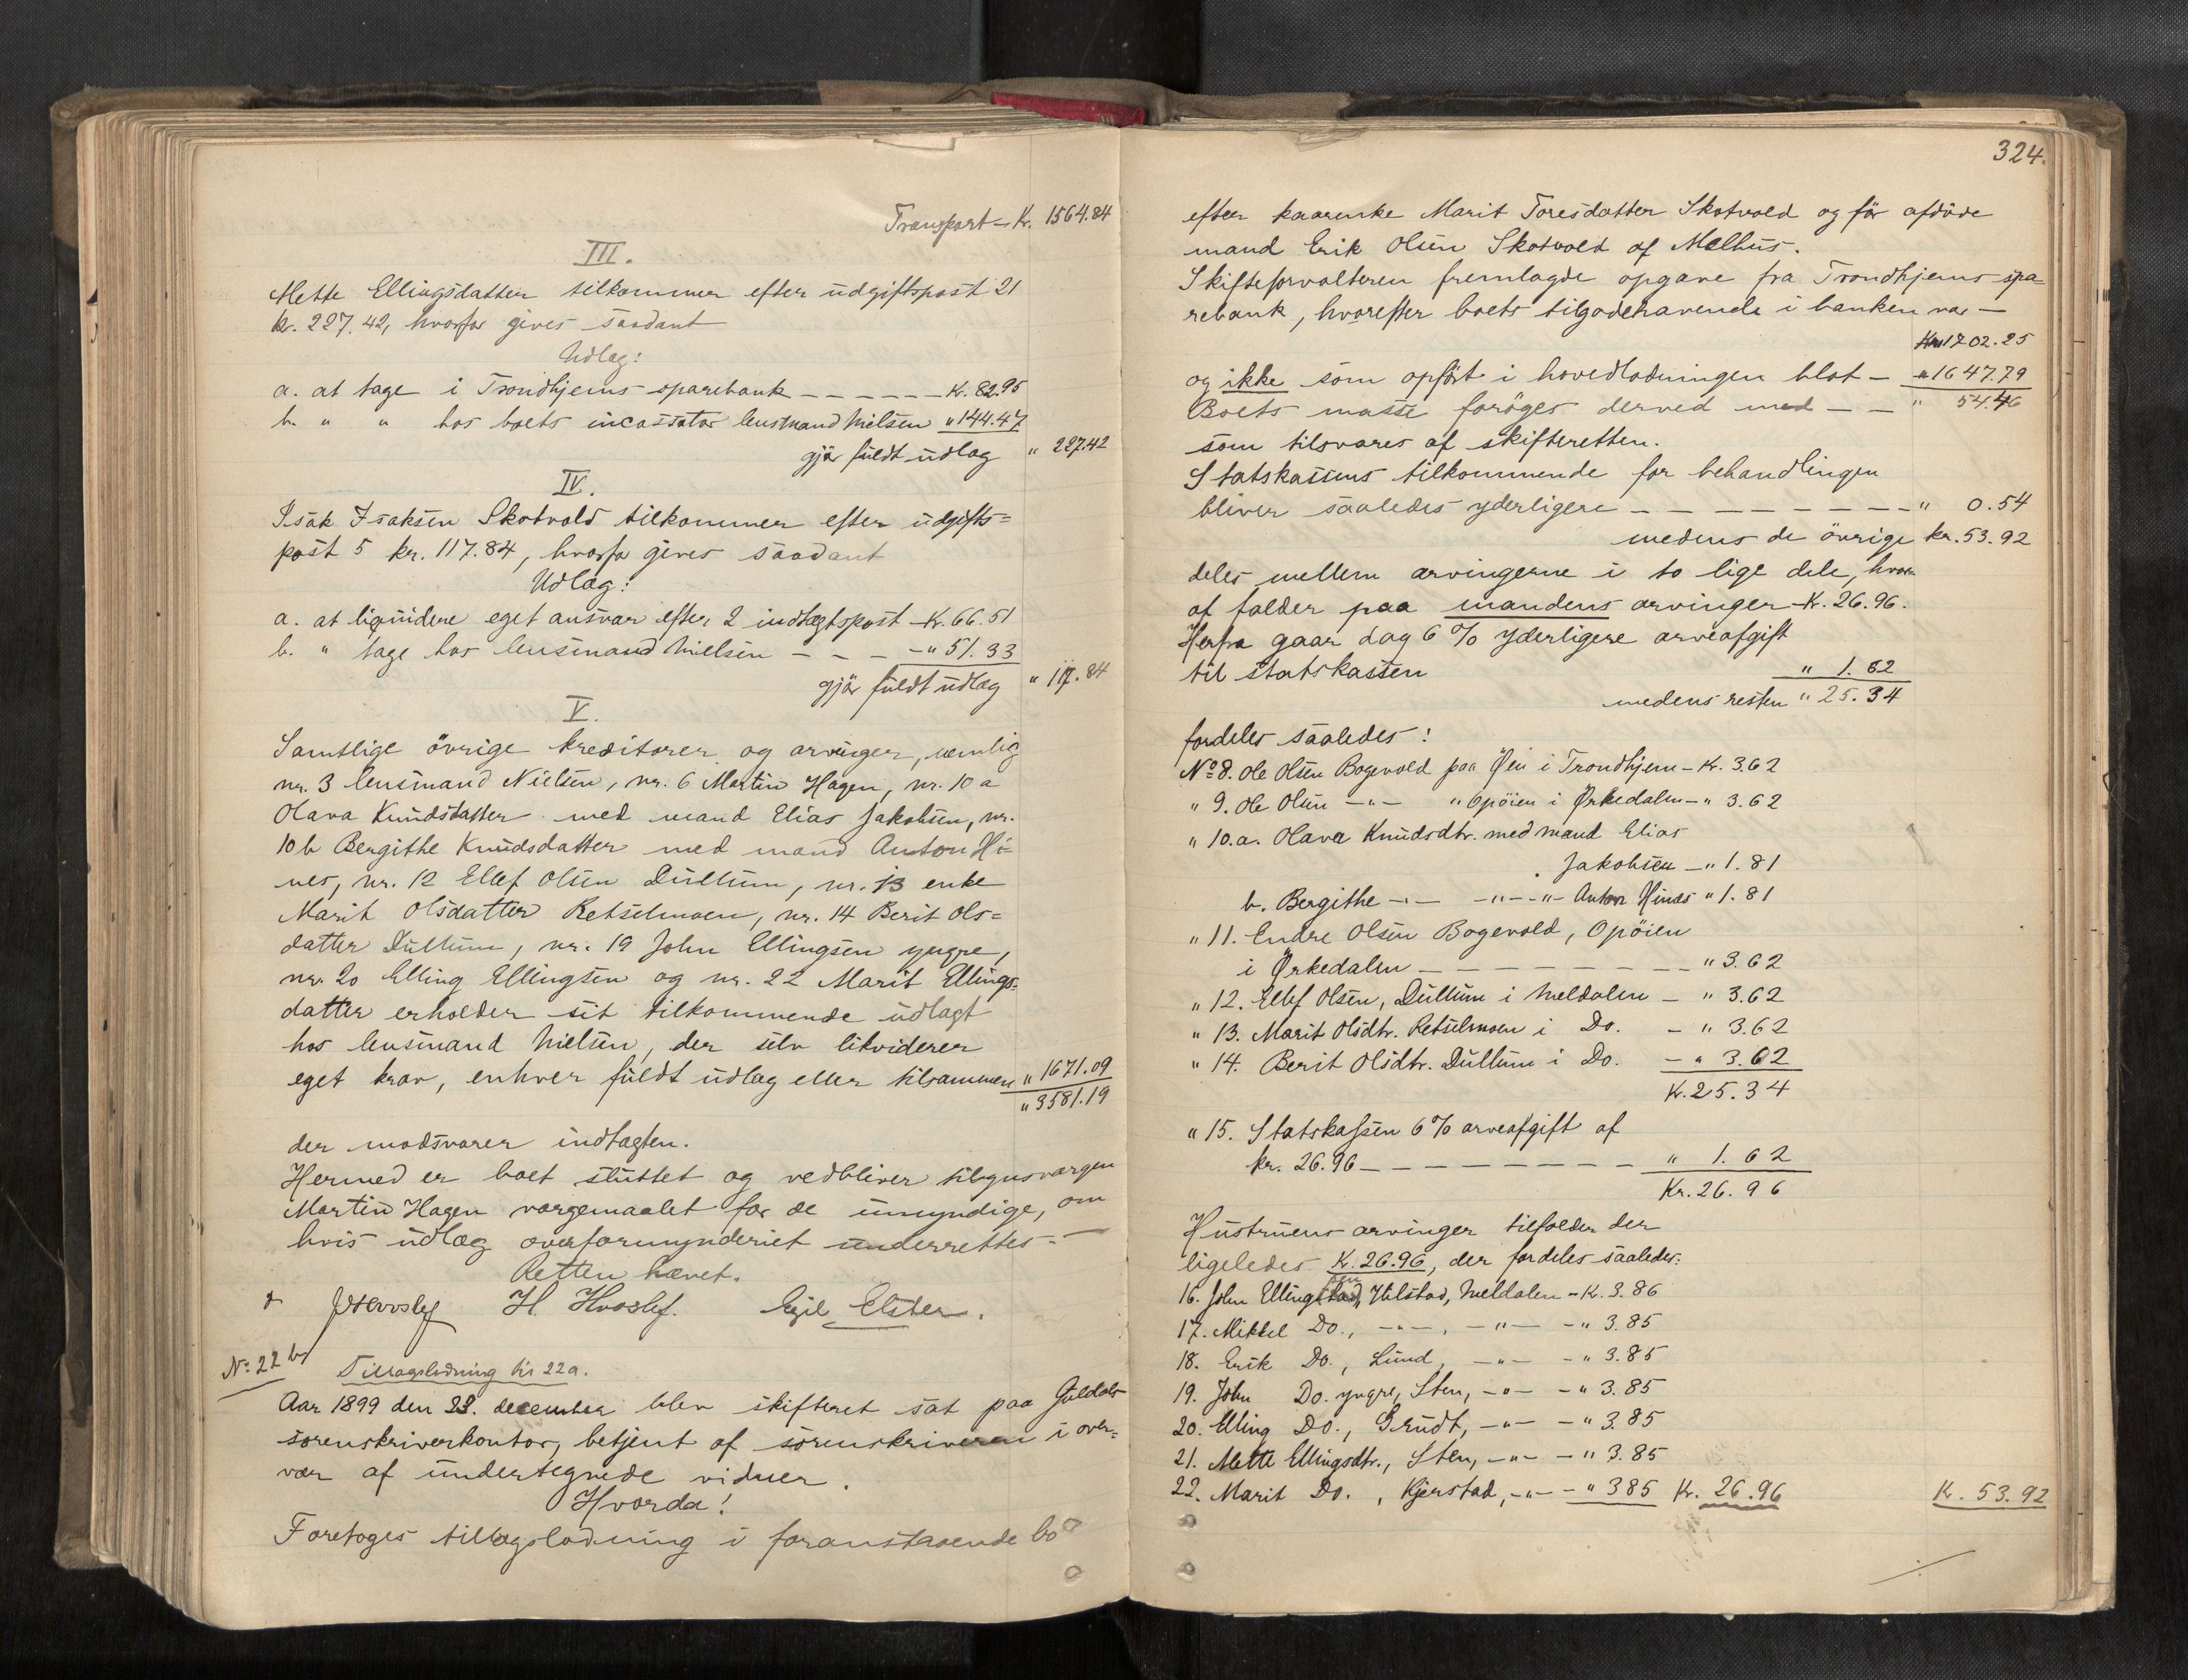 Transport - Kr. 1564.84
III.
Mette Ellingsdatter tilkommer efter udgiftspost 21
kr. 227.42, hvorfor gives saadant
Udlæg:
a. at tage i Trondhjems sparebank - - - - - - Kr. 82.95
b. " " hos boets incassator lensmand Nielsen " 144.47
gjör fuldt udlæg " 227.42
IV.
Isak Isaksen Skotvold tilkommer efter udgifts=
post 5 kr. 117.84, hvorfor gives saadant
Udlæg:
a. at liqvidere eget ansvar efter 2 indtægtspost - Kr. 66.51
b. " tage hos lensmand Nielsen - - - - " 51.33
gjör fuldt udlæg " 117.84
V.
Samtlige övrige kreditorer og arvinger, nemlig
nr. 3 lensmand Nielsen, nr. 6 Martin Hagen, nr. 10 a
Olava Knudsdatter med mand Elias Jakobsen, nr.
10 b Bergithe Knudsdatter med mand Anton Hi=
nes, nr. 12 Ellef Olsen Dullum, nr. 13 enke
Marit Olsdatter Retselmoen, nr. 14 Berit Ols=
datter Dullum, nr. 19 John Ellingsen yngre,
nr. 20 Elling Ellingsen og nr. 22 Marit Ellings=
datter erholder sit tilkommende udlagt
hos lensmand Nielsen, der selv likviderer
eget krav, enhver fuldt udlæg eller tilsammen " 1671.09
" 3581.19
der modsvarer indtægten.
Hermed er boet sluttet og vedbliver tilsynsværgen
Martin Hagen værgemaalet for de umyndige, om
hvis udlæg overformynderiet underrettes. -
Retten hævet.
H. Hvoslef. Egil Elster.
No 22 b Tillægslodning til 22a.
Aar 1899 den 23. december blev skifteret sat paa Guldals
sorenskriverkontor, betjent af sorenskriveren i over=
vær af undertegnede vidner.
Hvorda!
Foretoges tillægslodning i foranstaaende bo
324.
efter kaarenke Marit Toresdatter Skotvold og för afdöde
mand Erik Olsen Skotvold af Melhus.
Skifteforvalteren fremlagde opgave fra Trondhjems spa=
rebank, hvorefter boets tilgodehavende i banken var -
Kr. 1702.25
og ikke som opfört i hovedlodningen blot - " 1647.79
Boets masse foröges derved med - - " 54.46
som tilsvares af skifteretten.
Statskassens tilkommende for behandlingen
bliver saaledes yderligere - - - - - - - - " 0.54
medens de övrige kr. 53.92
deles mellem arvingerne i to lige dele, hvor-
af falder paa mandens arvinger Kr. 26.96.
Herfra gaar dog 6 % yderligere arveafgift
til statskassen " 1.62
medens resten " 25.34
fordeles saaledes:
No 8. Ole Olsen Bogevold paa Öen i Trondhjem - Kr. 3.62
" 9. Ole Olsen - " - " Opöien i Örkedalen - " 3.62
" 10. a. Olava Knudsdtr. med mand Elias
Jakobsen - " 1.81
b. Bergithe - " - - " - - " - Anton Hines " 1.81
" 11. Endre Olsen Bogevold, Opöien
i Örkedalen - - - - - - - - " 3.62
" 12. Ellef Olsen, Dullum i Meldalen - " 3.62
" 13. Marit Olsdtr. Retselmoen i Do. - " 3.62
" 14. Berit Olsdtr. Dullum i Do. - " 3.62
Kr. 25.34
" 15. Statskassen 6 % arveafgift af
kr. 26.96 - - - - - - - - " 1.62
Kr. 26.96
Hustruens arvinger tilfalder der
ligeledes Kr. 26.96, der fordeles saaledes:
16. John Ellingsen, Hilstad, Meldalen - Kr. 3.86
17. Mikkel Do., - " - , - " - - " 3.85
18. Erik Do., Lund, - " - - " 3.85
19. John Do. yngre, Sten, - " - - " 3.85
20. Elling Do., Grudt, - " - - " 3.85
21. Mette Ellingsdtr., Sten, - " - - " 3.85
22. Marit Do., Kjerstad, - " - - " 385 Kr. 26.96 Kr. 53.92